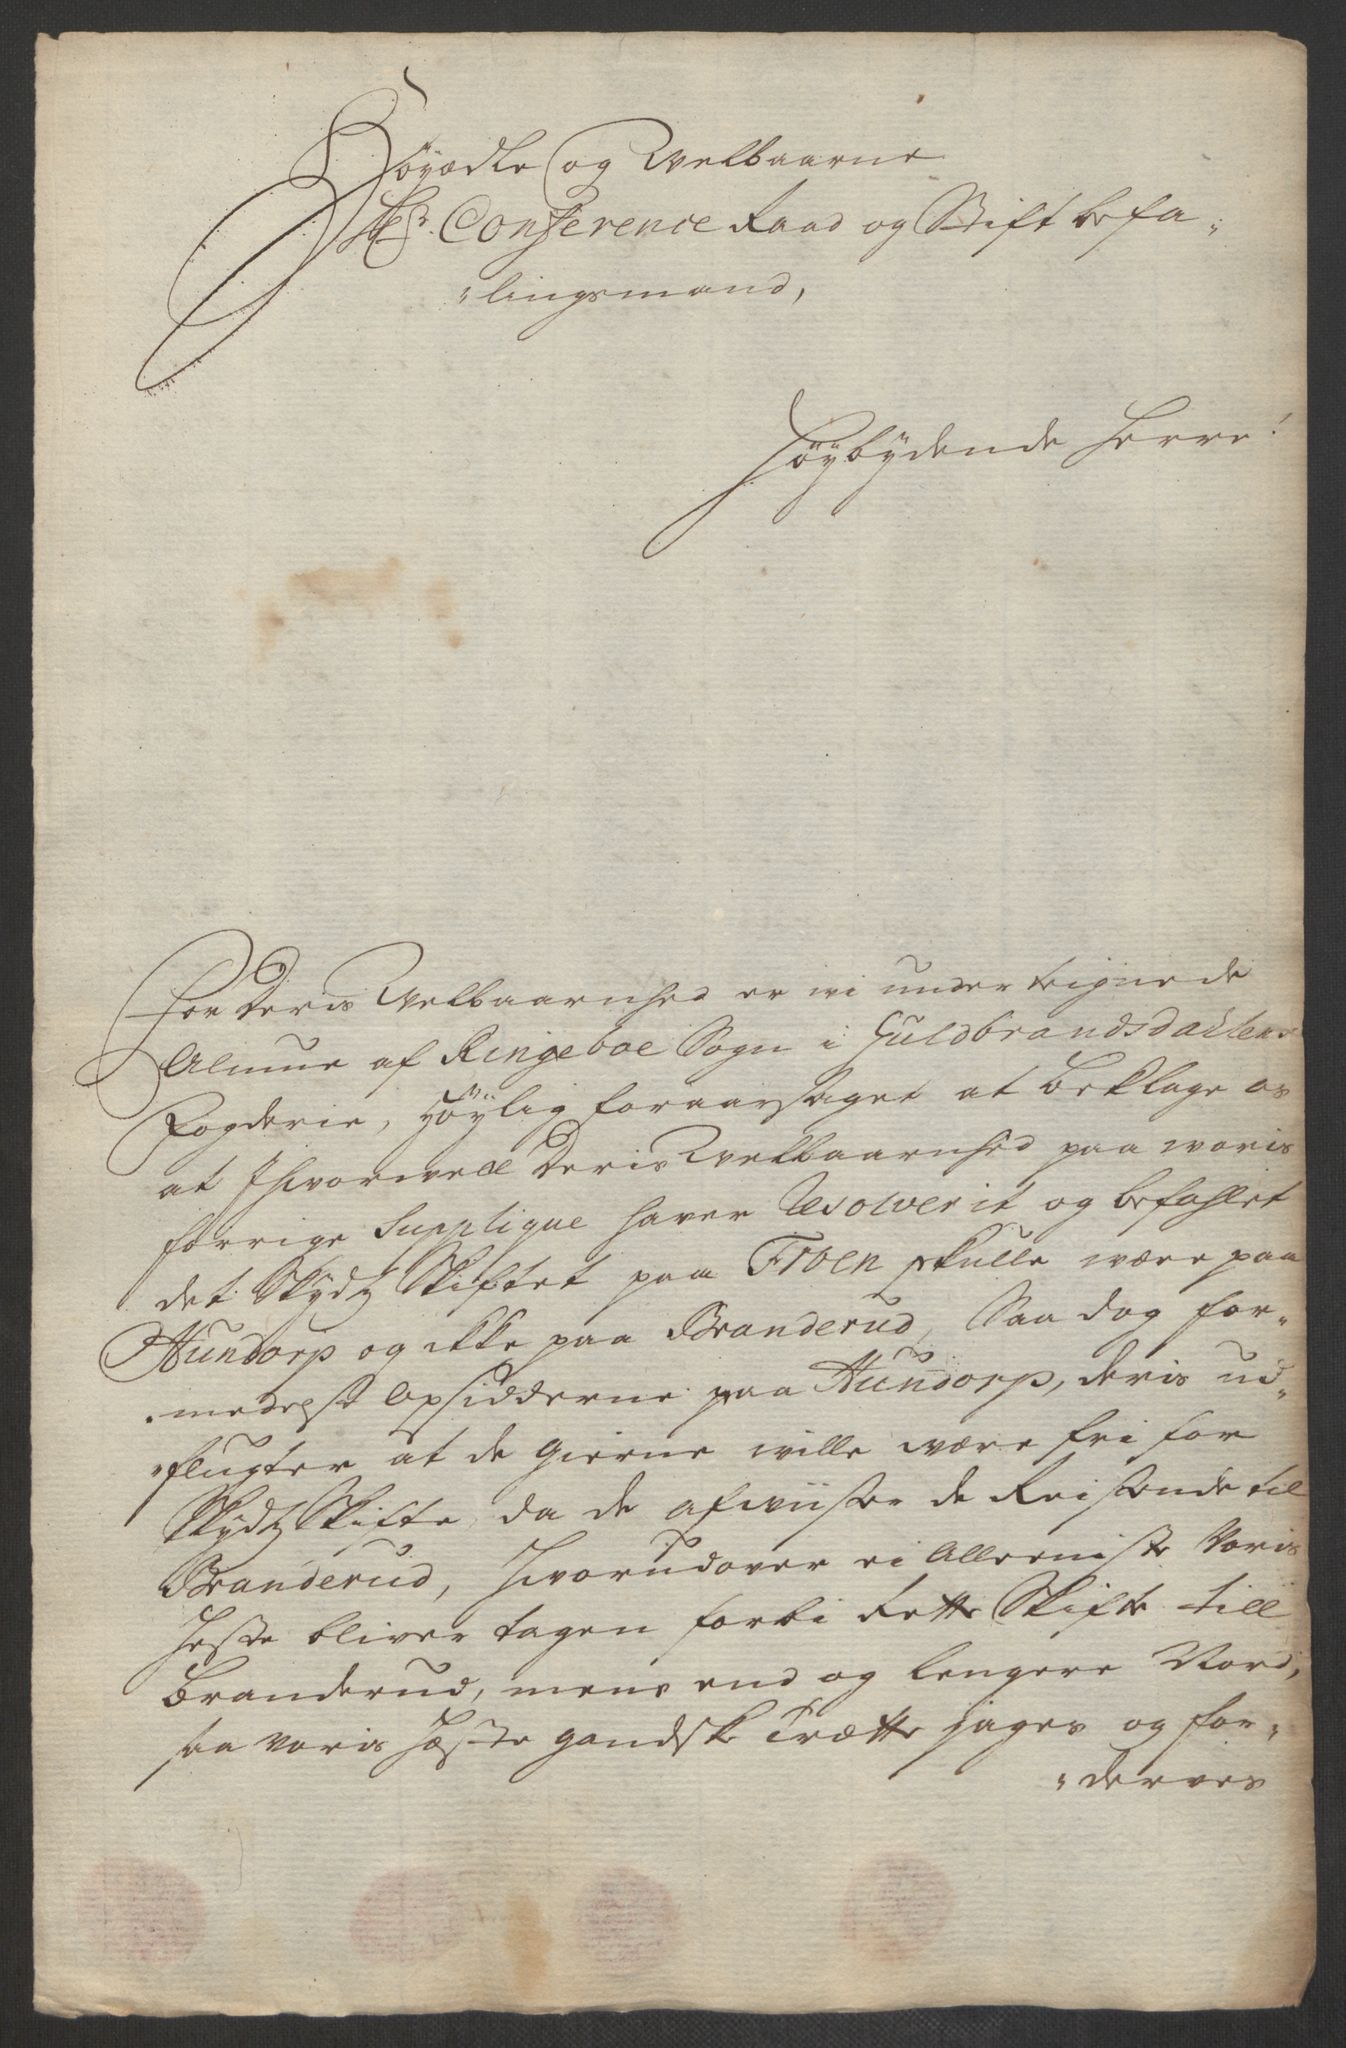 Höyædle og Welbaarne
Hr. Conference Raad og Stiftbefa-
-lingsmand,
Höybydende Herre!
For Deris Welbaarnhed er wi underteignede
Almue af Ringeboe Sogn i Guldbrandsdahlens
Fogderie, höylig foraarsaget at beklage os
at Ihvorwell Deris Welbaarnhed paa woris
forrige Supplique haver Resolverit og befahlet
det Skydtz Skiftet paa Froen skulle wære paa
Hundorp og ikke paa Branderud, Saa dog for-
-medelst Opsidderne paa Hundorp, deris ud-
-flugter at de gierne wille være fri for
Skydtz Skifte, da de afwiiser de Reisende til
Branderud, hvorudover ei Alleeniste Voris
Heste bliver tagen forbi Rette Skifte till
Branderud, mens end og lengere Nord,
saa voris Hæste gandske Trætte jages og for-
-derves